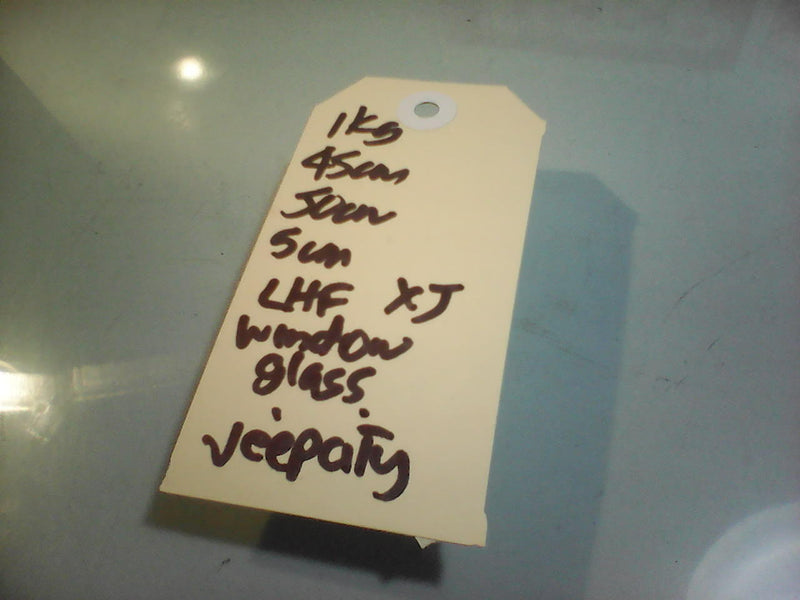 1kg
45cm
50cm
5cm
LHF XJ
window
glass